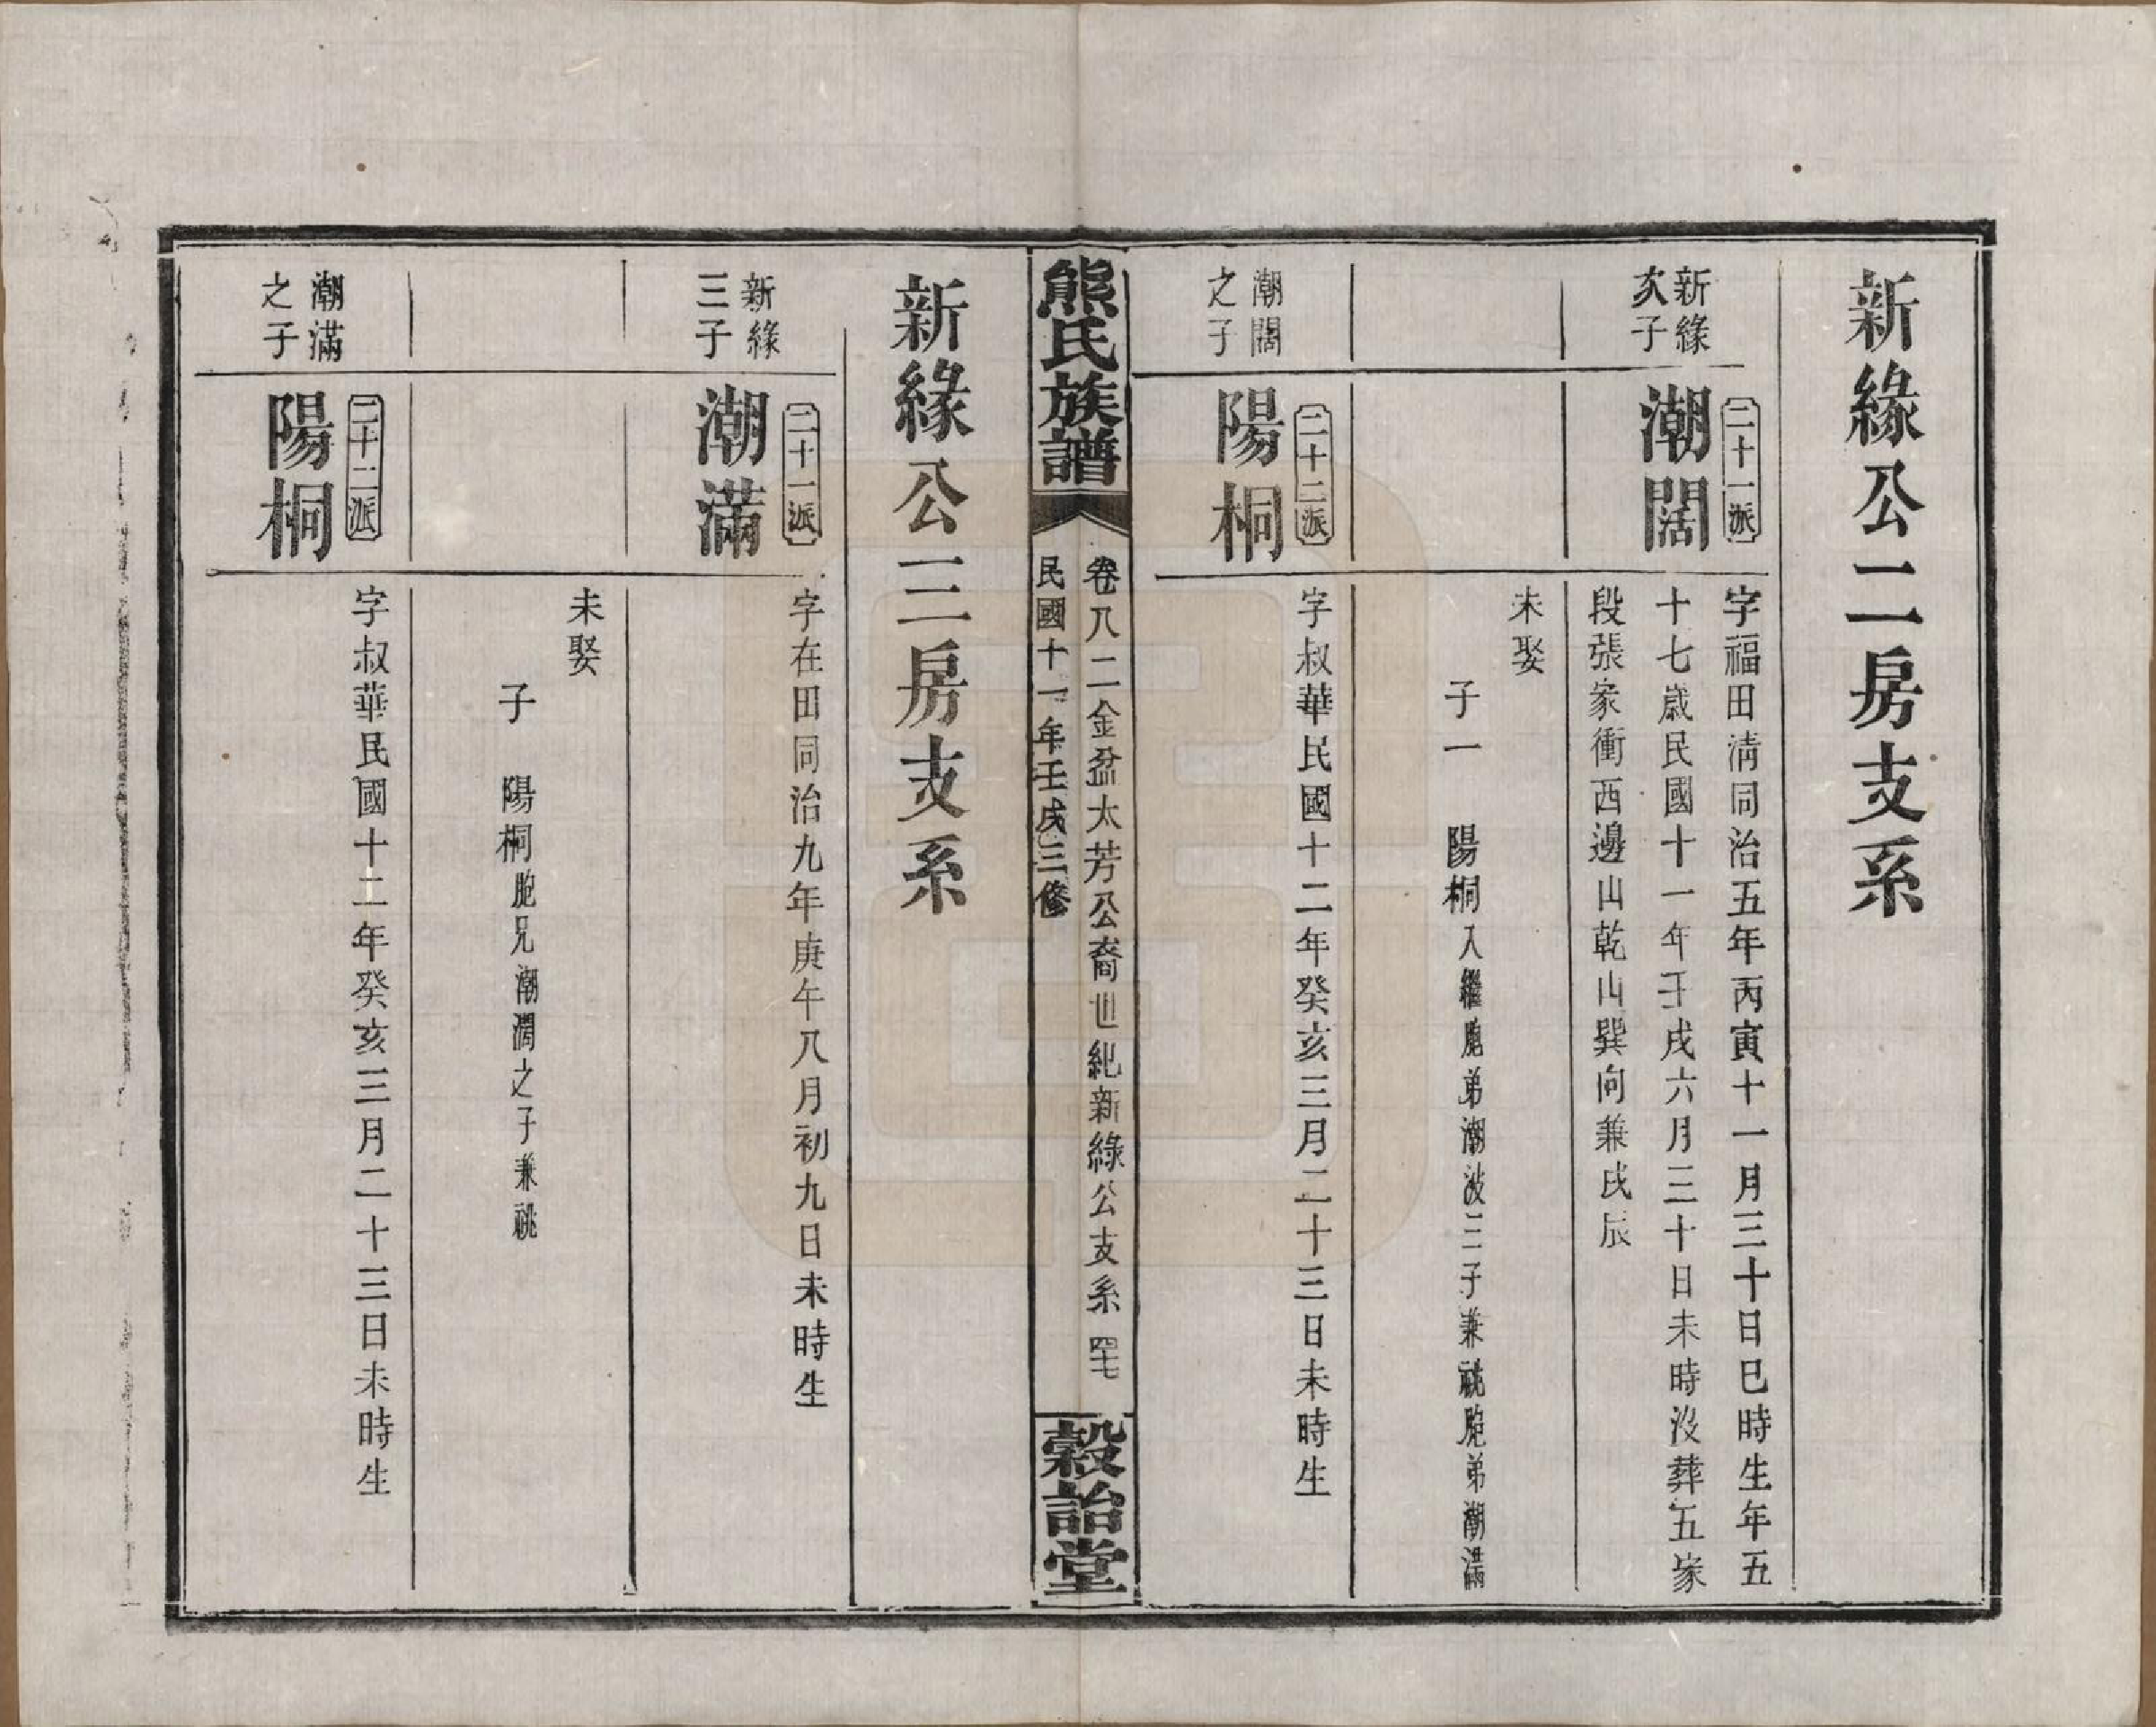 新緣公二房支系
新緣
次子
二十一派
潮闊
字福田清同治五年丙寅十一月三十日巳時生年五
十七歲民國十一年壬戌六月三十日未時沒葬五家
段張家衝西邊山乾山巽向兼戌辰
未娶
子一 陽桐入繼胞弟潮波三子兼祧胞弟潮滿
潮闊
之子
二十二派
陽桐
字叔華民國十二年癸亥三月二十三日未時生
熊氏族譜
卷八二金盆太芳公裔世紀新緣公支系 四十七
民國十一年壬戌三修
穀詒堂
新緣公三房支系
新緣
三子
二十一派
潮滿
字在田同治九年庚午八月初九日未時生
未娶
子 陽桐胞兄潮闊之子兼祧
潮滿
之子
二十二派
陽桐
字叔華民國十二年癸亥三月二十三日未時生